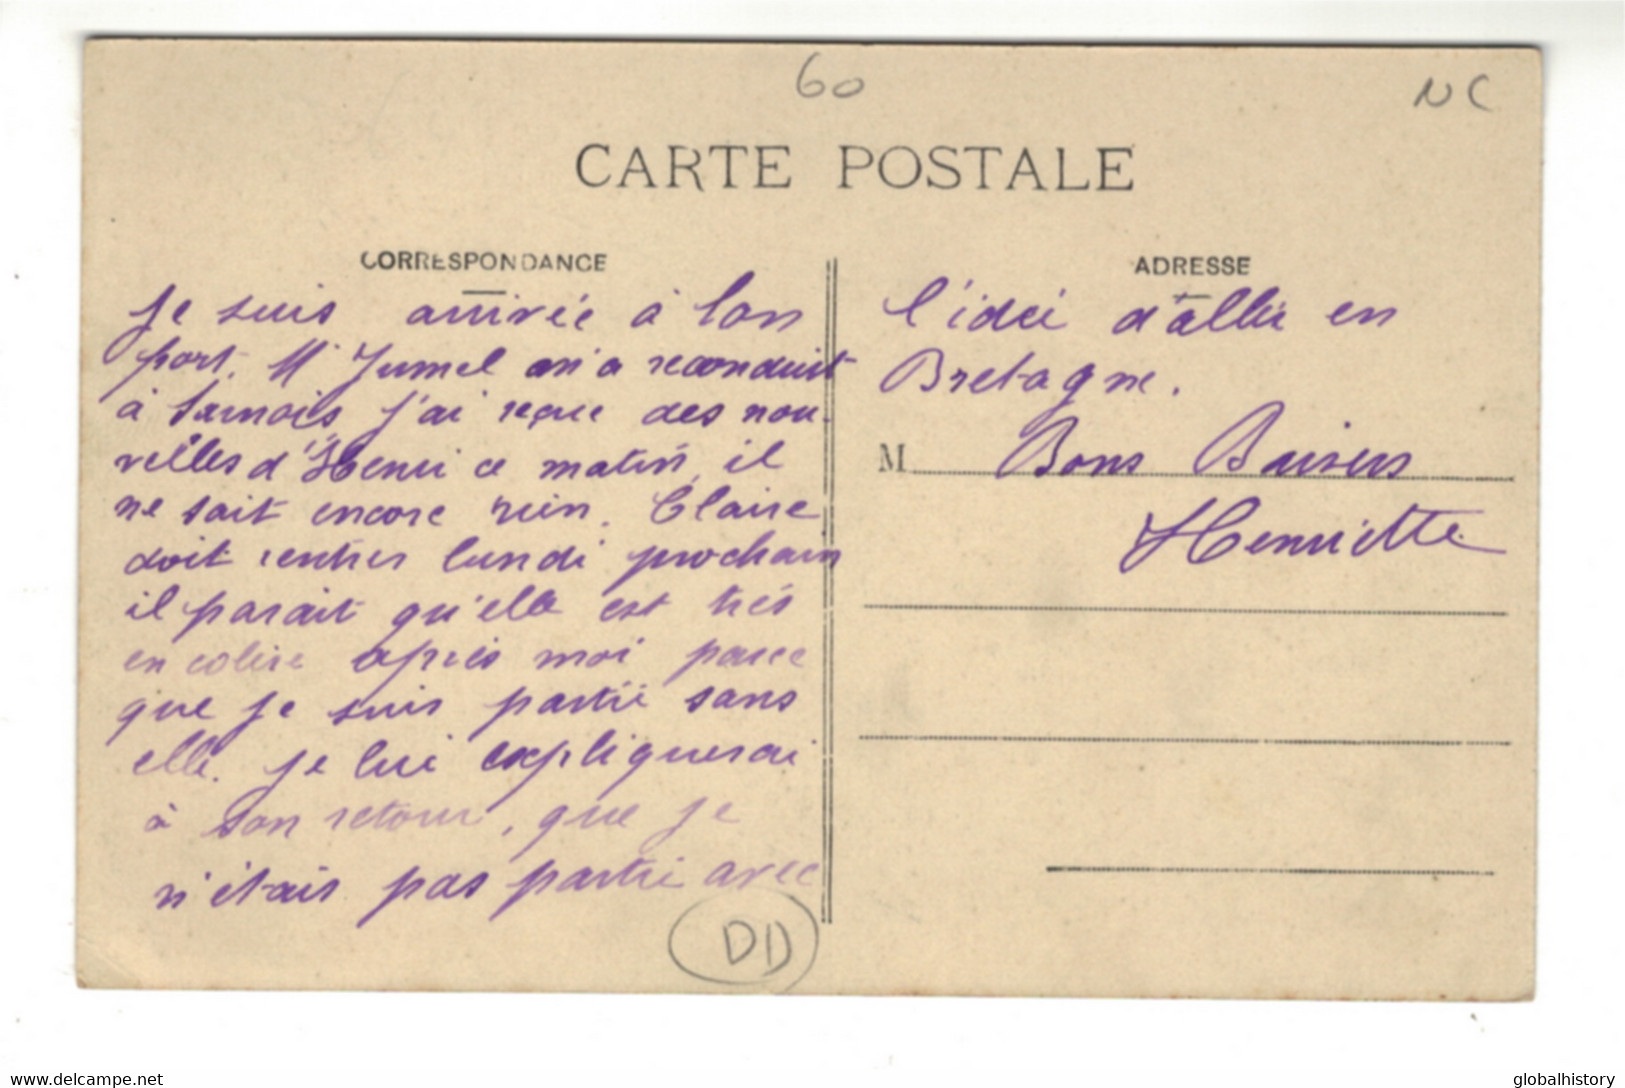 60
NC
CARTE POSTALE
CORRESPONDANCE
Je suis arrivée à bon
port. Mr Jumel m'a reconduit
à Sarnois j'ai reçue des nou-
velles d'Henri ce matin, il
ne sait encore rien. Claire
doit rentrer lundi prochain
il parait qu'elle est très
en colère après moi parce
que je suis partie sans
elle. Je lui expliquerai
à son retour, que je
n'étais pas partie avec
DD
ADRESSE
l'idée d'aller en
Bretagne.
M Bons Baisers
Henriette
www.delcampe.net
globalhistory